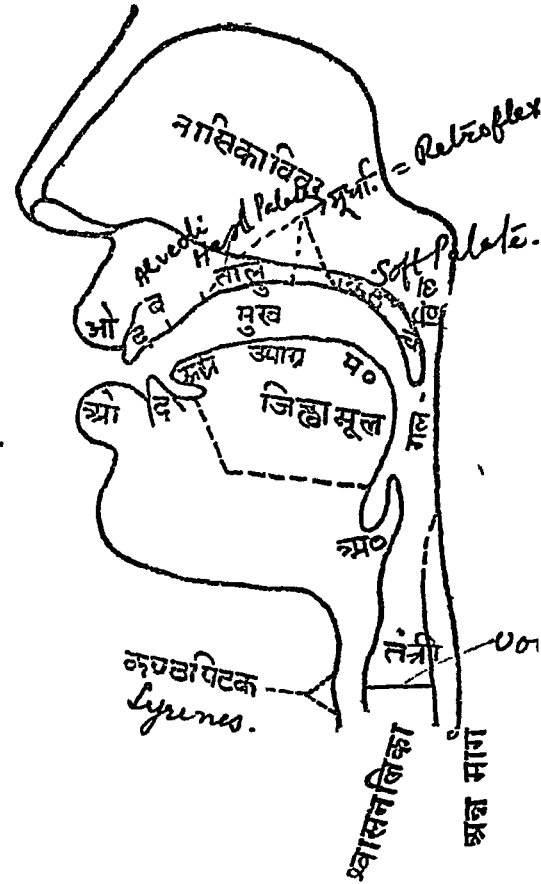 नासिकाविवर
मूर्धा = Retroflex
Alveoli
Hard Palate
Soft Palate.
तालु
ओ
व
द
मुख
अग्र
उपाग्र
म०
ओ
द
जिह्वामूल
गल
अ०
तंत्री
कण्ठपिटक
Lyrenes.
श्वासनलिका
अन्न मार्ग